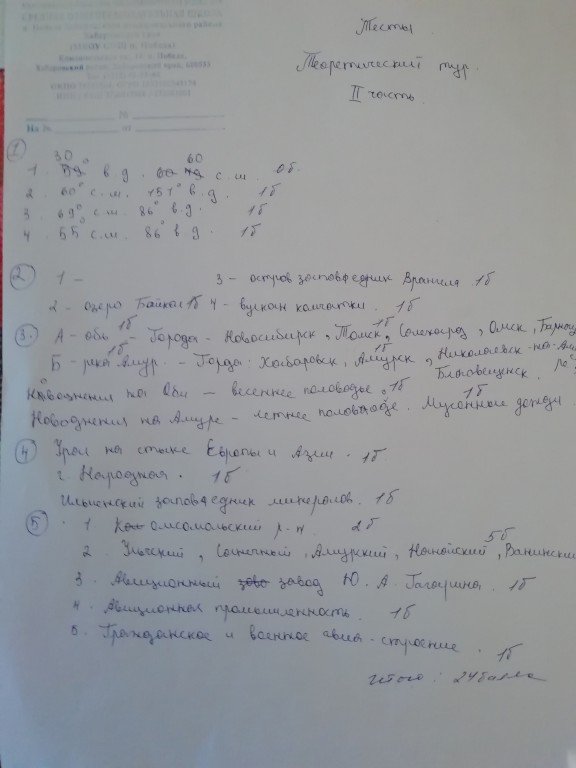 СРЕДНЯЯ ОБЩЕОБРАЗОВАТЕЛЬНАЯ ШКОЛА
Хабаровского края
(МБОУ СОШ п. Победа)
Хабаровский край,
№
На № от
Тесты
Теоретический тур.
II часть.
1
30 60
1. 59° в.д. 60 с.ш. 0б.
2. 60° с.ш. 151° в.д. 1б
3 69° с.ш. 86° в.д. 1б
4 55° с.ш. 86° в.д. 1б
2. 1 - 3 - остров заповедник Врангеля 1б
2 - озеро Байкал 1б 4 - вулкан камчатки. 1б
3. А - обь 1б - Города - Новосибирск, Томск, 1б Салехард, Омск, Барнаул
Б - река Амур. 1б - Города Хабаровск, 1б Амурск, Николаевск-на-Ам
Благовещинск.
Новоднения на Оби - весеннее половодье, 1б
Новоднения на Амуре - летнее половодье. Мусонные дожди. 1б
4 Урал на стыке Европы и Азии. 1б
г. Народная. 1б
Ильменский заповедник минералов. 1б
5. 1 Комсомольский р-н. 2б
2. Ульчский, Солнечный, Амурский, Нанайский, Ванинский 5б
3. Авиционный завод Ю. А. Гагарина. 1б
4. Авиционная промышленность. 1б
5. Гражданское и военное авиа-строение. 1б
Итого: 24балла